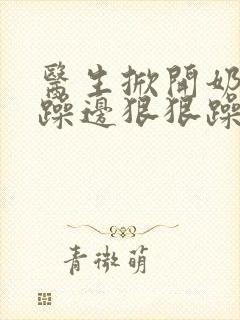 醫生掀開奶
躁邊狠狠躁
青微萌